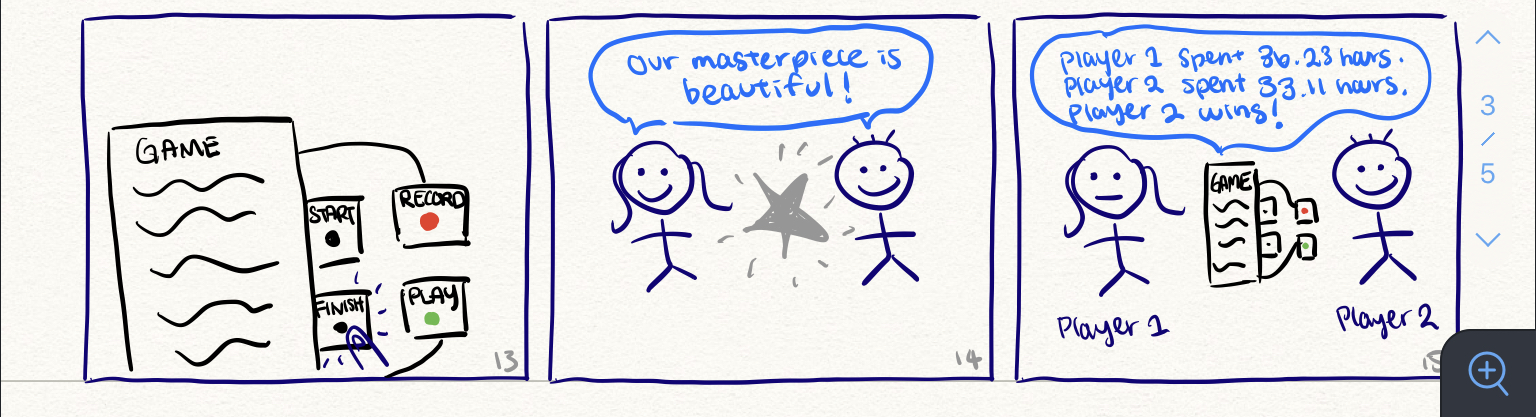 GAME
START
RECORD
FINISH
PLAY
13
Our masterpiece is
beautiful!
14
Player 1 spent 36.23 hours.
Player 2 spent 33.11 hours.
Player 2 wins!
GAME
Player 1
Player 2
15
3
/
5